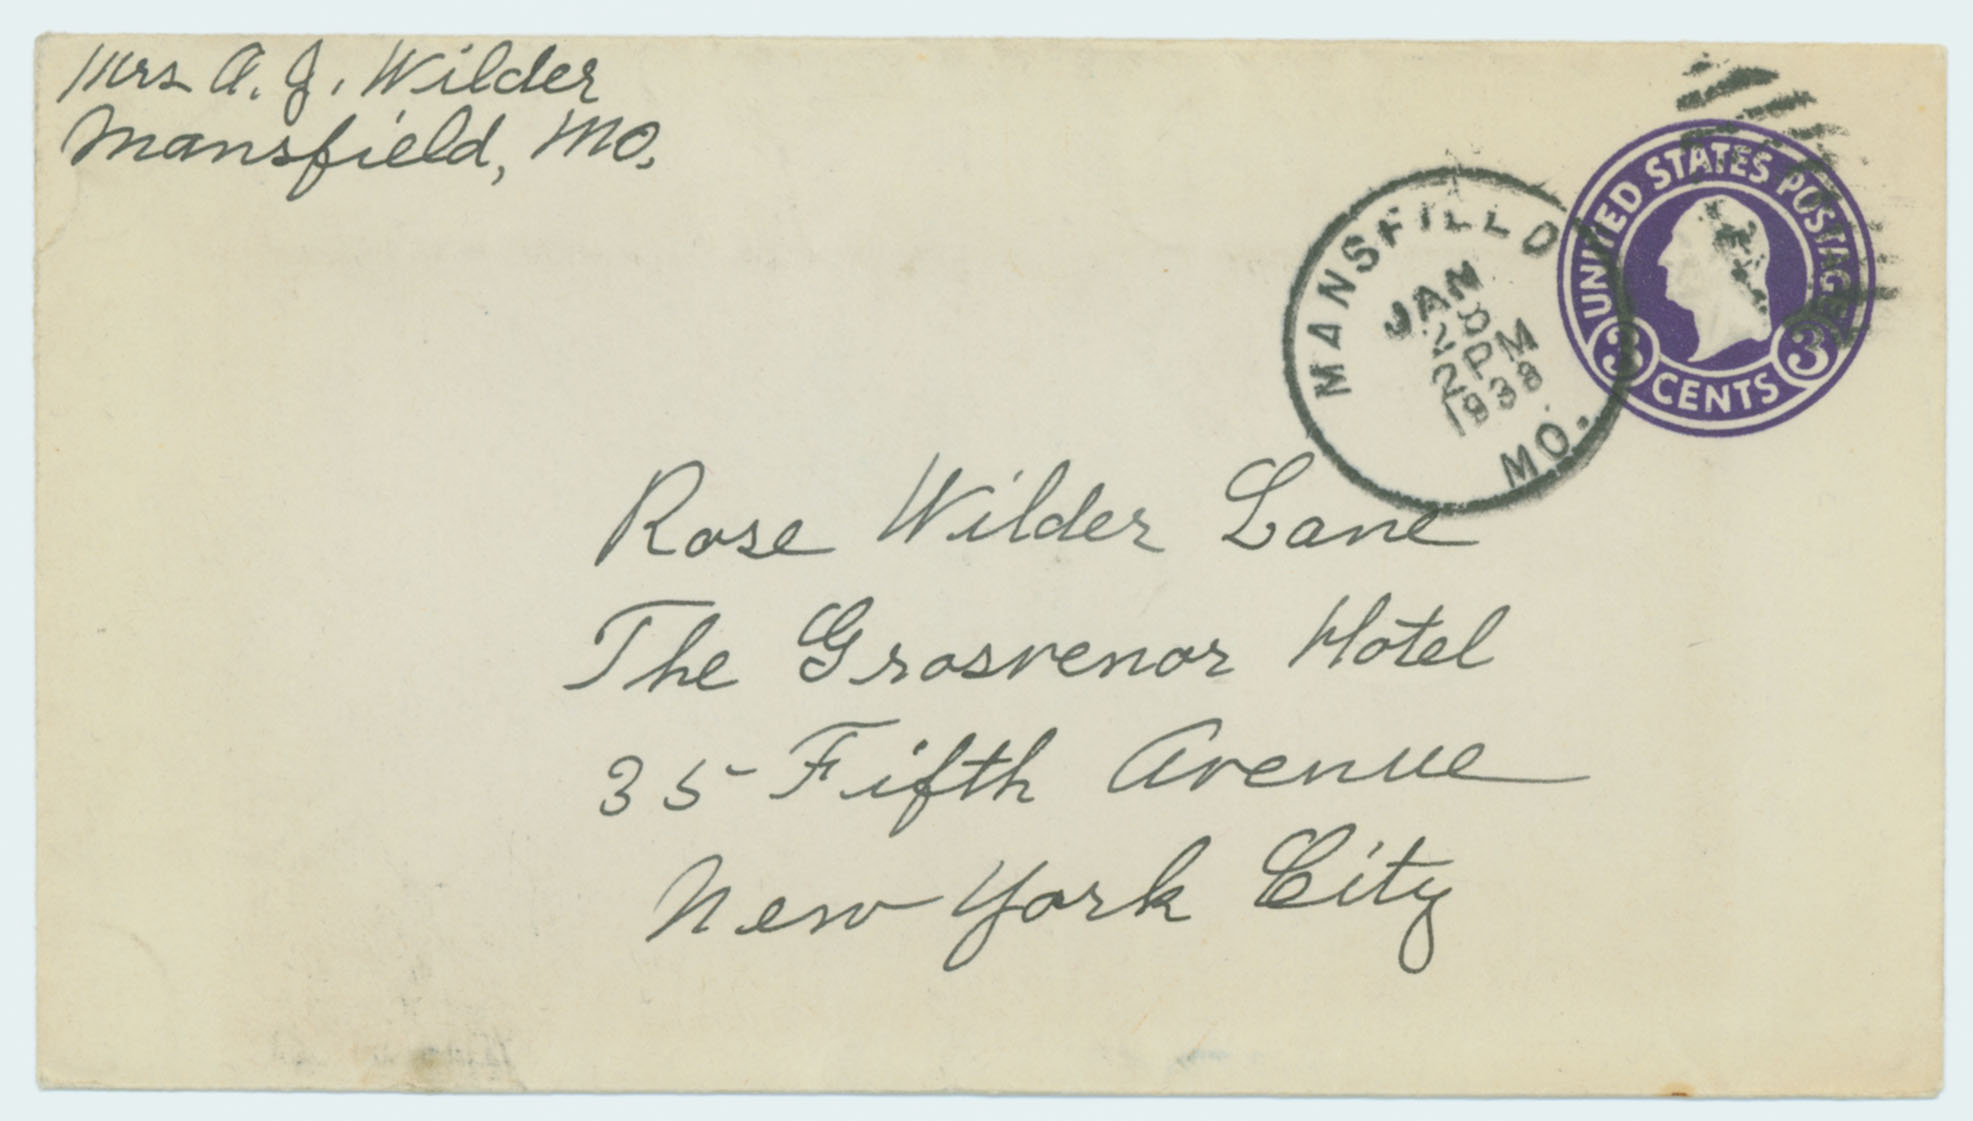 Mrs A. J. Wilder
Mansfield, Mo.
UNITED STATES POSTAGE
3 CENTS 3
MANSFIELD
JAN
2PM
1938
MO.
Rose Wilder Lane
The Grosvenor Hotel
35 Fifth Avenue
New York City